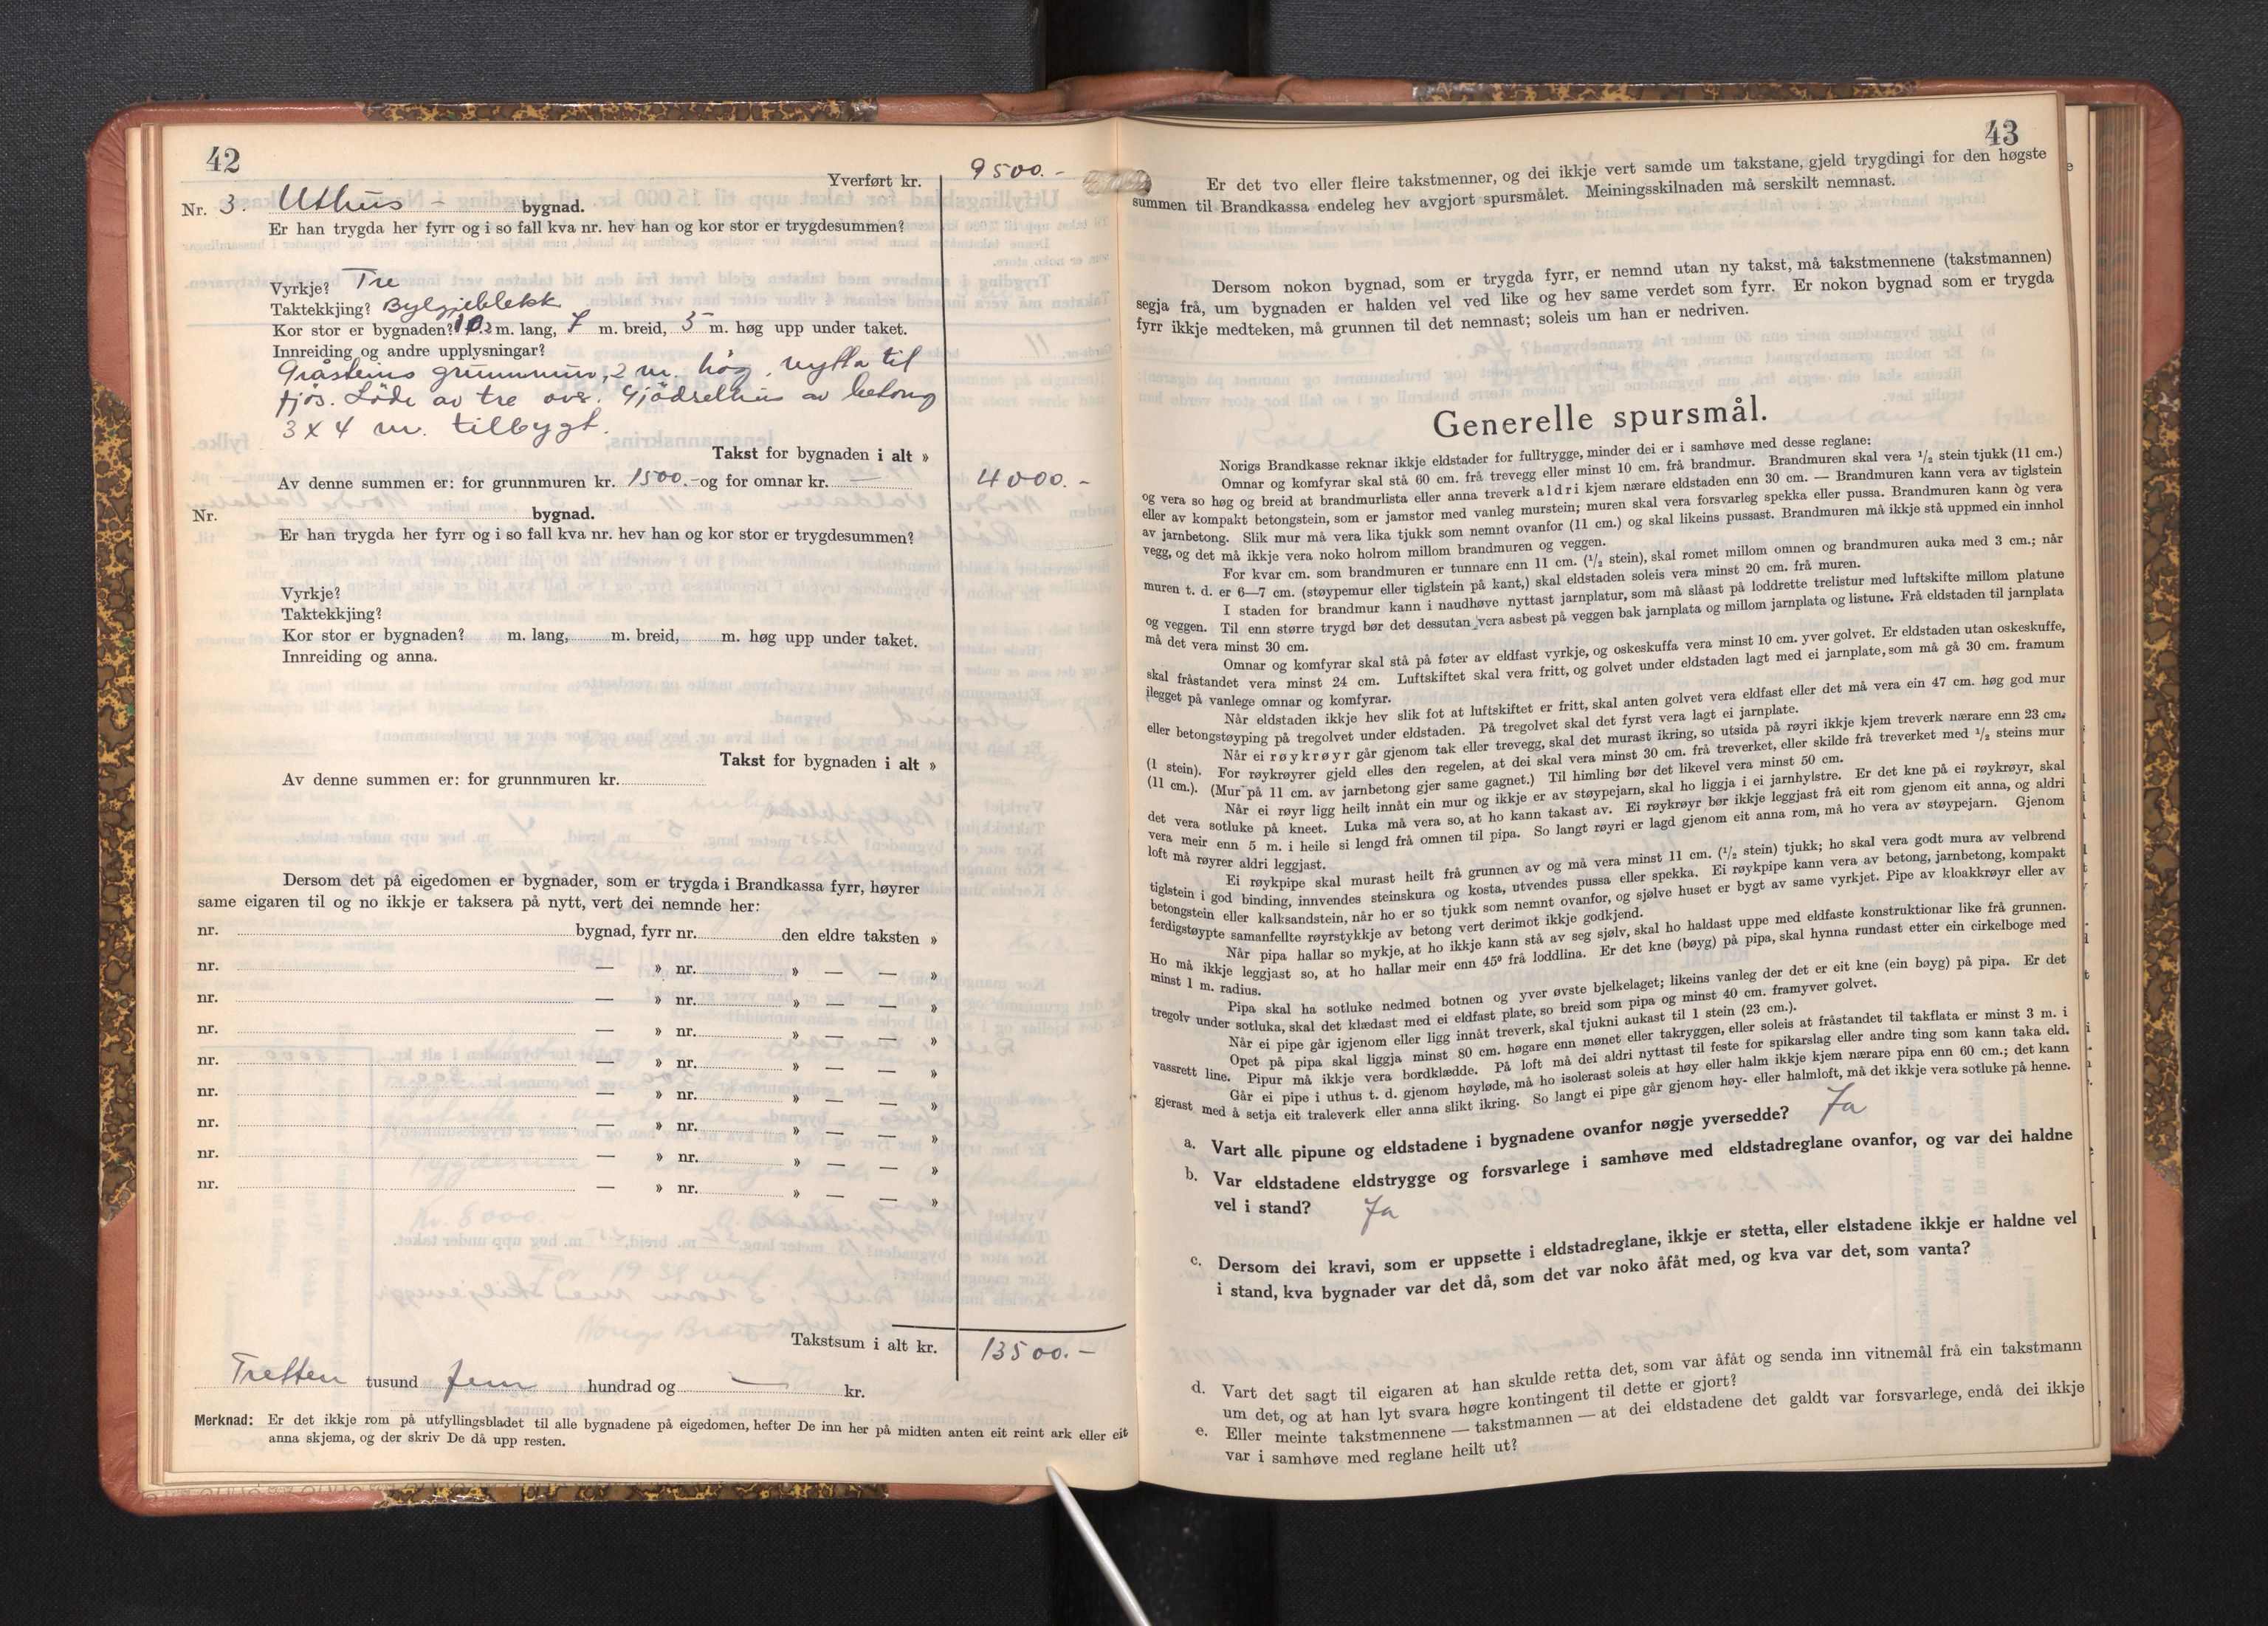 42
Yverført kr. 9500.-
Nr. 3. Uthus - bygnad.
Er han trygda her fyrr og i so fall kva nr. hev han og kor stor er trygdesummen?
Vyrkje? Tre
Taktekkjing? Bylgjeblekk
Kor stor er bygnaden? 10.2 m. lang, 7 m. breid, 5 m. høg upp under taket.
Innreiding og andre upplysningar?
Gråsteins grunnmur, 2 m. høg. nytta til
fjøs. Löde av tre over. Gjödselhus av betong
3 x 4 m. tilbygt.
Takst for bygnaden i alt »
Av denne summen er: for grunnmuren kr. 1500.- og for omnar kr. — 4000.-
Nr. bygnad.
Er han trygda her fyrr og i so fall kva nr. hev han og kor stor er trygdesummen?
Vyrkje?
Taktekkjing?
Kor stor er bygnaden? m. lang, m. breid, m. høg upp under taket.
Innreiding og anna.
Takst for bygnaden i alt »
Av denne summen er: for grunnmuren kr.
Dersom det på eigedomen er bygnader, som er trygda i Brandkassa fyrr, høyrer
same eigaren til og no ikkje er taksera på nytt, vert dei nemnde her:
nr. bygnad, fyrr nr. den eldre taksten »
nr. — » nr. » — — »
nr. — » nr. » — — »
nr. — » nr. » — — »
nr. — » nr. » — — »
nr. — » nr. » — — »
nr. — » nr. » — — »
nr. — » nr. » — — »
nr. — » nr. » — — »
Takstsum i alt kr. 13500.-
Tretten tusund fem hundrad og — kr.
Merknad: Er det ikkje rom på utfyllingsbladet til alle bygnadene på eigedomen, hefter De inn her på midten anten eit reint ark eller eit
anna skjema, og der skriv De då upp resten.
43
Er det tvo eller fleire takstmenner, og dei ikkje vert samde um takstane, gjeld trygdingi for den høgste
summen til Brandkassa endeleg hev avgjort spursmålet. Meiningsskilnaden må serskilt nemnast.
Dersom nokon bygnad, som er trygda fyrr, er nemnd utan ny takst, må takstmennene (takstmannen)
segja frå, um bygnaden er halden vel ved like og hev same verdet som fyrr. Er nokon bygnad som er trygda
fyrr ikkje medteken, må grunnen til det nemnast; soleis um han er nedriven.
Generelle spursmål.
Norigs Brandkasse reknar ikkje eldstader for fulltrygge, minder dei er i samhøve med desse reglane:
Omnar og komfyrar skal stå 60 cm. frå trevegg eller minst 10 cm. frå brandmur. Brandmuren skal vera 1/2 stein tjukk (11 cm.)
og vera so høg og breid at brandmurlista eller anna treverk aldri kjem nærare eldstaden enn 30 cm. — Brandmuren kann vera av tiglstein
eller av kompakt betongstein, som er jamstor med vanleg murstein; muren skal vera forsvarleg spekka eller pussa. Brandmuren kann òg vera
av jarnbetong. Slik mur må vera lika tjukk som nemnt ovanfor (11 cm.) og skal likeins pussast. Brandmuren må ikkje stå uppmed ein innhol
vegg, og det må ikkje vera noko holrom millom brandmuren og veggen.
For kvar cm. som brandmuren er tunnare enn 11 cm. (1/2 stein), skal romet millom omnen og brandmuren auka med 3 cm.; når
muren t. d. er 6—7 cm. (støypemur eller tiglstein på kant,) skal eldstaden soleis vera minst 20 cm. frå muren.
I staden for brandmur kann i naudhøve nyttast jarnplatur, som må slåast på loddrette trelistur med luftskifte millom platune
og veggen. Til enn større trygd bør det dessutan vera asbest på veggen bak jarnplata og millom jarnplata og listune. Frå eldstaden til jarnplata
må det vera minst 30 cm.
Omnar og komfyrar skal stå på føter av eldfast vyrkje, og oskeskuffa vera minst 10 cm. yver golvet. Er eldstaden utan oskeskuffe,
skal fråstandet vera minst 24 cm. Luftskiftet skal vera fritt, og golvet under eldstaden lagt med ei jarnplate, som må gå 30 cm. framum
ilegget på vanlege omnar og komfyrar.
Når eldstaden ikkje hev slik fot at luftskiftet er fritt, skal anten golvet vera eldfast eller det må vera ein 47 cm. høg god mur
eller betongstøyping på tregolvet under eldstaden. På tregolvet skal det fyrst vera lagt ei jarnplate.
Når ei røykrøyr går gjenom tak eller trevegg, skal det murast ikring, so utsida på røyri ikkje kjem treverk nærare enn 23 cm.
(1 stein). For røykrøyrer gjeld elles den regelen, at dei skal vera minst 30 cm. frå treverket, eller skilde frå treverket med 1/2 steins mur
(11 cm.). (Mur på 11 cm. av jarnbetong gjer same gagnet.) Til himling bør det likevel vera minst 50 cm.
Når ei røyr ligg heilt innåt ein mur og ikkje er av støypejarn, skal ho liggja i ei jarnhylstre. Er det kne på ei røykrøyr, skal
det vera sotluke på kneet. Luka må vera so, at ho kann takast av. Ei røykrøyr bør ikkje leggjast frå eit rom gjenom eit anna, og aldri
vera meir enn 5 m. i heile si lengd frå omnen til pipa. So langt røyri er lagd gjenom eit anna rom, må ho vera av støypejarn. Gjenom
loft må røyrer aldri leggjast.
Ei røykpipe skal murast heilt frå grunnen av og må vera minst 11 cm. (1/2 stein) tjukk; ho skal vera godt mura av velbrend
tiglstein i god binding, innvendes steinskura og kosta, utvendes pussa eller spekka. Ei røykpipe kann vera av betong, jarnbetong, kompakt
betongstein eller kalksandstein, når ho er so tjukk som nemnt ovanfor, og sjølve huset er bygt av same vyrkjet. Pipe av kloakkrøyr eller av
ferdigstøypte samanfellte røyrstykkje av betong vert derimot ikkje godkjend.
Når pipa hallar so mykje, at ho ikkje kann stå av seg sjølv, skal ho haldast uppe med eldfaste konstruktionar like frå grunnen.
Ho må ikkje leggjast so, at ho hallar meir enn 45° frå loddlina. Er det kne (bøyg) på pipa, skal hynna rundast etter ein cirkelboge med
minst 1 m. radius.
Pipa skal ha sotluke nedmed botnen og yver øvste bjelkelaget; likeins vanleg der det er eit kne (ein bøyg) på pipa. Er det
tregolv under sotluka, skal det klædast med ei eldfast plate, so breid som pipa og minst 40 cm. framyver golvet.
Når ei pipe går igjenom eller ligg innåt treverk, skal tjukni aukast til 1 stein (23 cm.).
Opet på pipa skal liggja minst 80 cm. høgare enn mønet eller takryggen, eller soleis at fråstandet til takflata er minst 3 m. i
vassrett line. Pipur må ikkje vera bordklædde. På loft må dei aldri nyttast til feste for spikarslag eller andre ting som kann taka eld.
Går ei pipe i uthus t. d. gjenom høyløde, må ho isolerast soleis at høy eller halm ikkje kjem nærare pipa enn 60 cm.; det kann
gjerast med å setja eit traleverk eller anna slikt ikring. So langt ei pipe går gjenom høy- eller halmloft, må det ikkje vera sotluke på henne.
a. Vart alle pipune og eldstadene i bygnadene ovanfor nøgje yversedde? Ja
b. Var eldstadene eldstrygge og forsvarlege i samhøve med eldstadreglane ovanfor, og var dei haldne
vel i stand? Ja
c. Dersom dei kravi, som er uppsette i eldstadreglane, ikkje er stetta, eller elstadene ikkje er haldne vel
i stand, kva bygnader var det då, som det var noko åfåt med, og kva var det, som vanta?
d. Vart det sagt til eigaren at han skulde retta det, som var åfåt og senda inn vitnemål frå ein takstmann
um det, og at han lyt svara høgre kontingent til dette er gjort?
e. Eller meinte takstmennene — takstmannen — at dei eldstadene det galdt var forsvarlege, endå dei ikkje
var i samhøve med reglane heilt ut?